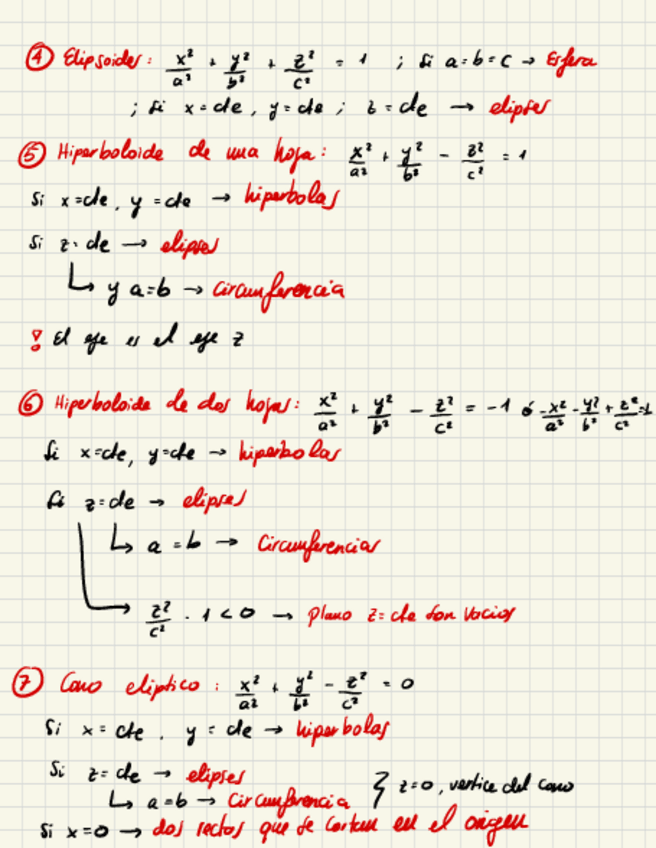 ④ Elipsoides: x²/a² + y²/b² + z²/c² = 1 ; Si a=b=c → Esfera
; Si x=cte, y=cte ; z=cte → elipses
⑤ Hiperboloide de una hoja: x²/a² + y²/b² - z²/c² = 1
Si x=cte, y=cte → hiperbolas
Si z=cte → elipses
↳ y a=b → circunferencia
! El eje es el eje z
⑥ Hiperboloide de dos hojas: x²/a² + y²/b² - z²/c² = -1 ó -x²/a² - y²/b² + z²/c² = 1
Si x=cte, y=cte → hiperbolas
Si z=cte → elipses
↳ a=b → Circunferencias
→ z²/c² - 1 < 0 → plano z=cte son vacios
⑦ Cono eliptico: x²/a² + y²/b² - z²/c² = 0
Si x=cte, y=cte → hiperbolas
Si z=cte → elipses
↳ a=b → Circunferencia } z=0, vertice del cono
Si x=0 → dos rectas que se cortan en el origen